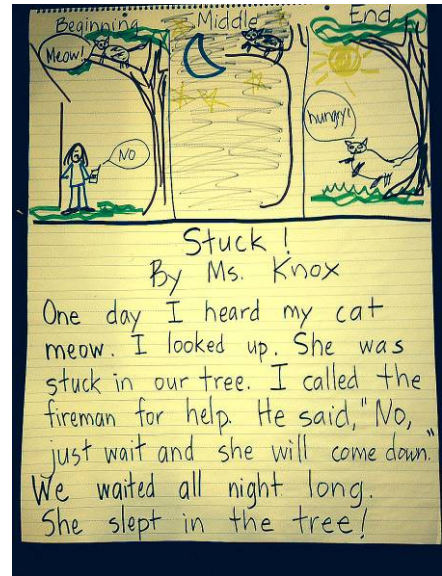 Beginning Middle End
Meow!
NO
hungry!
Stuck!
By Ms. Knox
One day I heard my cat
meow. I looked up. She was
stuck in our tree. I called the
fireman for help. He said, "No,
just wait and she will come down."
We waited all night long.
She slept in the tree!